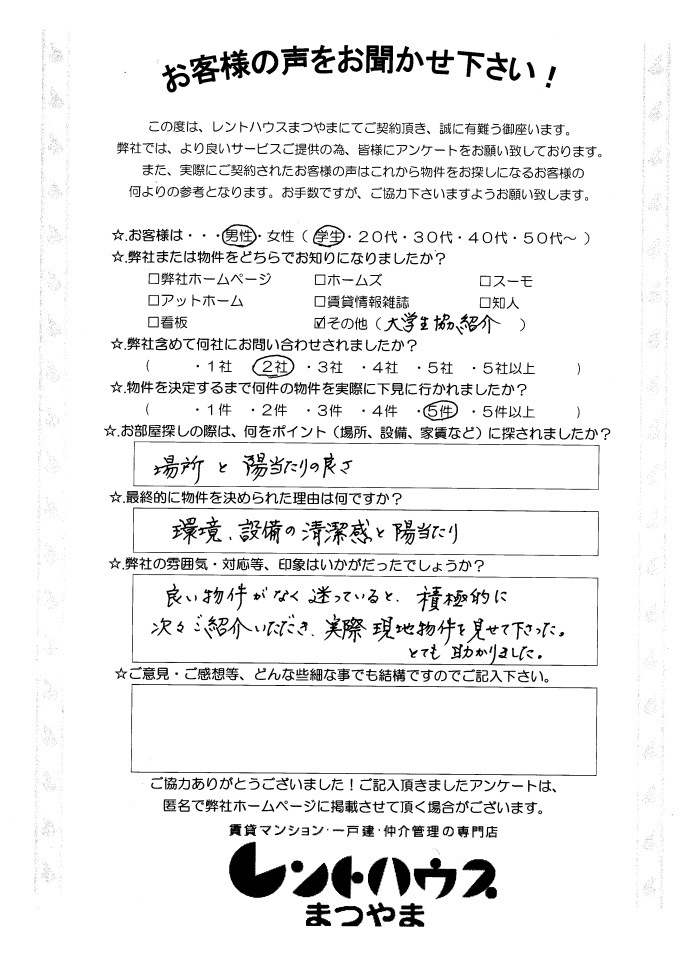 お客様の声をお聞かせ下さい！
この度は、レントハウスまつやまにてご契約頂き、誠に有難う御座います。
弊社では、より良いサービスご提供の為、皆様にアンケートをお願い致しております。
また、実際にご契約されたお客様の声はこれから物件をお探しになるお客様の
何よりの参考となります。お手数ですが、ご協力下さいますようお願い致します。
☆.お客様は・・・男性・女性（ 学生・２０代・３０代・４０代・５０代～ ）
☆.弊社または物件をどちらでお知りになりましたか？
□弊社ホームページ □ホームズ □スーモ
□アットホーム □賃貸情報雑誌 □知人
□看板 ☑その他（ 大学生協、紹介 ）
☆.弊社含めて何社にお問い合わせされましたか？
（ ・１社 ・２社 ・３社 ・４社 ・５社 ・５社以上 ）
☆.物件を決定するまで何件の物件を実際に下見に行かれましたか？
（ ・１件 ・２件 ・３件 ・４件 ・５件 ・５件以上 ）
☆.お部屋探しの際は、何をポイント（場所、設備、家賃など）に探されましたか？
場所 と 陽当たりの良さ
☆.最終的に物件を決められた理由は何ですか？
環境、設備の清潔感と陽当たり
☆.弊社の雰囲気・対応等、印象はいかがだったでしょうか？
良い物件がなく迷っていると、積極的に
次々ご紹介いただき、実際現地物件を見せて下さった。
とても助かりました。
☆ご意見・ご感想等、どんな些細な事でも結構ですのでご記入下さい。
ご協力ありがとうございました！ご記入頂きましたアンケートは、
匿名で弊社ホームページに掲載させて頂く場合がございます。
賃貸マンション・一戸建・仲介管理の専門店
レントハウス
まつやま